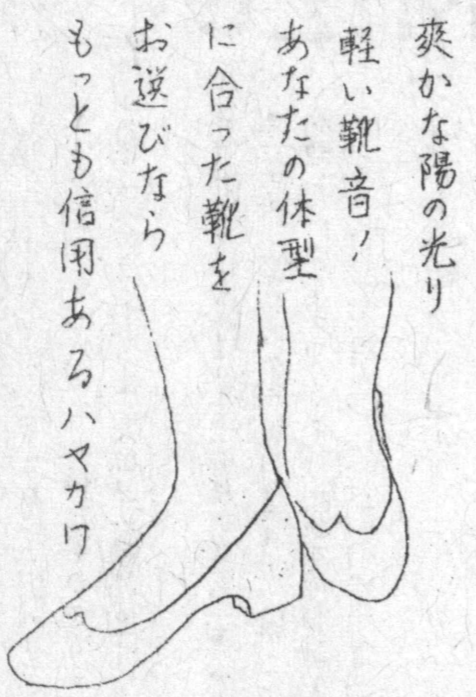 爽かな陽の光り
軽い靴音!
あなたの体型
に合った靴を
お選びなら
もっとも信用あるハヤカワ